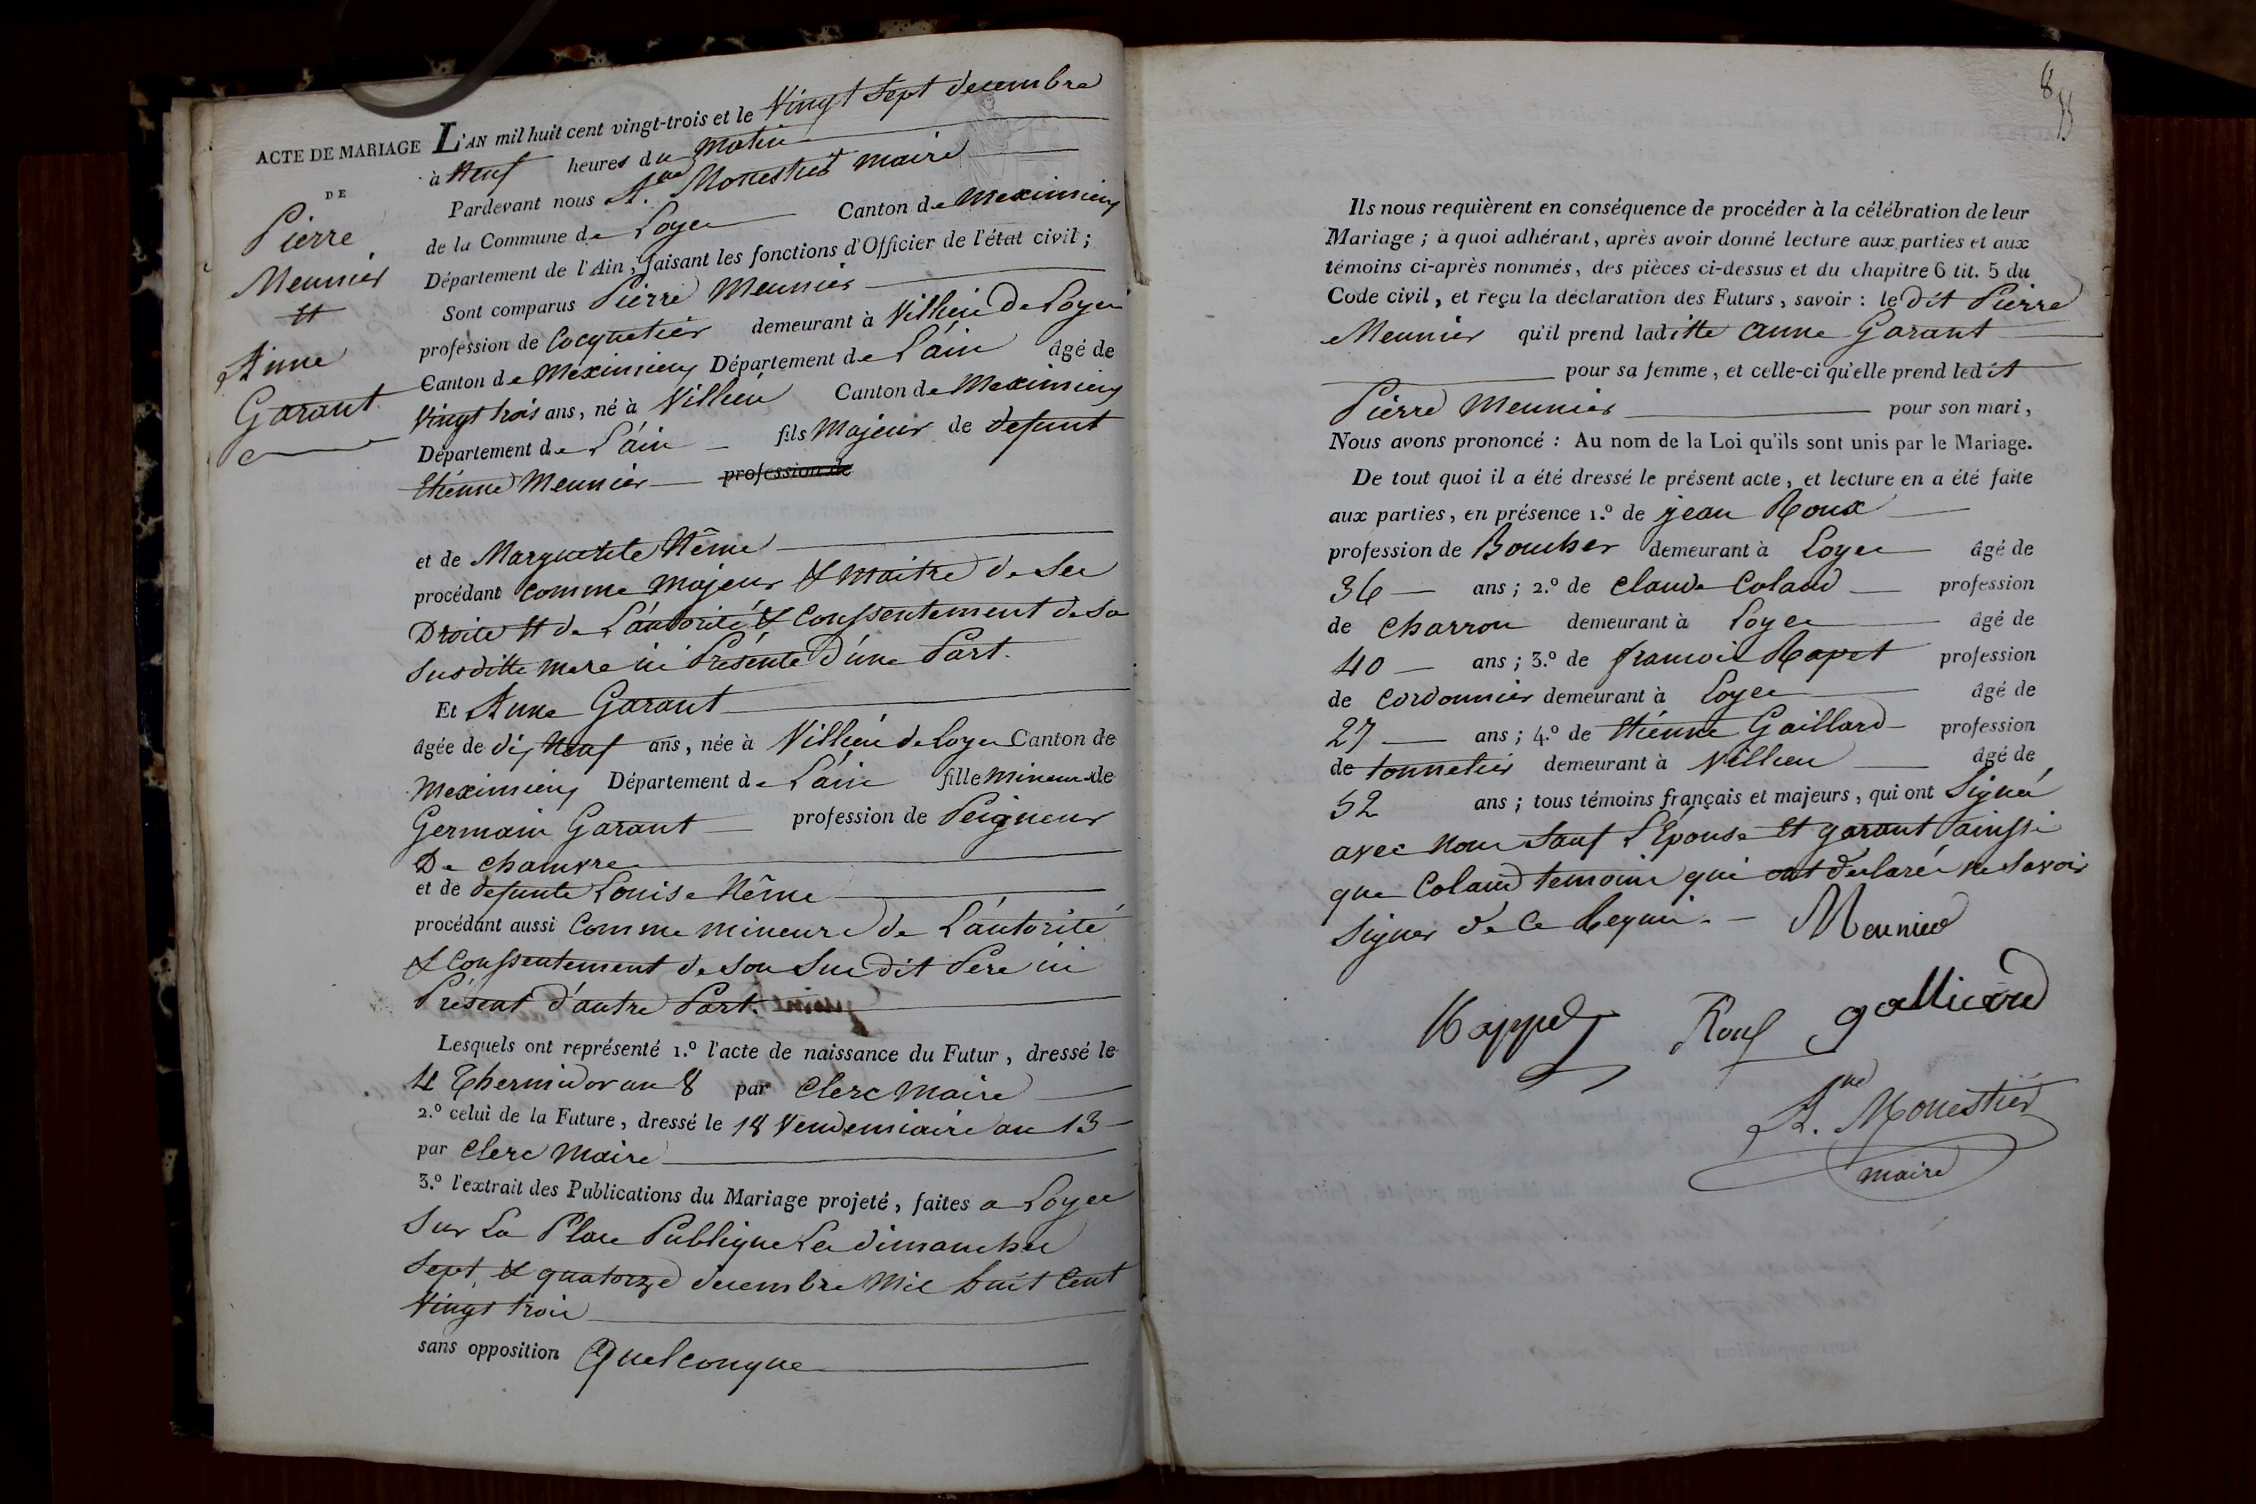 ACTE DE MARIAGE
DE
Pierre
Meunier
et
Anne
Garant
L'AN mil huit cent vingt-trois et le Vingt Sept decembre
à Neuf heures du matin
Pardevant nous A.ne Monestier maire
de la Commune de Loyes Canton de Meximieux
Département de l'Ain, faisant les fonctions d'Officier de l'état civil;
Sont comparus Pierre Meunier
profession de Cocquetier demeurant à Villieu De Loyes
Canton de Meximieux Département de L'ain âgé de
Vingt trois ans, né à Villieu Canton de Meximieux
Département de L'ain fils Majeur de defunt
Etienne Meunier profession de
et de Marguerite Nême
procédant comme majeur & maitre de Ses
Droits et de L'autorité & Conssentement de Sa
Susditte mere ici Présente D'une Part.
Et Anne Garant
âgée de dix Neuf ans, née à Villieu de Loyes Canton de
Meximieux Département de L'ain fille mineure de
Germain Garant profession de Peigneur
De chamvre
et de defunte Louise Nême
procédant aussi Comme mineure de L'autorité
& Conssentement de Son Susdit Père ici
Présent d'autre Part.
Lesquels ont représenté 1.º l'acte de naissance du Futur, dressé le
4 Thermidor an 8 par Clerc Maire
2.º celui de la Future, dressé le 18 Vendemiaire an 13
par Clerc Maire
3.º l'extrait des Publications du Mariage projeté, faites a Loyes
Sur La Place Publique Les dimanches
Sept & quatorze decembre Mil huit Cent
Vingt trois
sans opposition Quelconque
8
Ils nous requièrent en conséquence de procéder à la célébration de leur
Mariage; à quoi adhérant, après avoir donné lecture aux parties et aux
témoins ci-après nommés, des pièces ci-dessus et du chapitre 6 tit. 5 du
Code civil, et reçu la déclaration des Futurs, savoir: le dit Pierre
Meunier qu'il prend laditte Anne Garant
pour sa femme, et celle-ci qu'elle prend ledit
Pierre Meunier pour son mari,
Nous avons prononcé: Au nom de la Loi qu'ils sont unis par le Mariage.
De tout quoi il a été dressé le présent acte, et lecture en a été faite
aux parties, en présence 1.º de jean Roux
profession de Boucher demeurant à Loyes âgé de
36 ans; 2.º de Claude Coland profession
de Charron demeurant à Loyes âgé de
40 ans; 3.º de francois Rapet profession
de Cordonnier demeurant à Loyes âgé de
27 ans; 4.º de Etienne Gaillard profession
de tonnelier demeurant à Villieu âgé de
52 ans; tous témoins français et majeurs, qui ont Signé
avec nous Sauf L'Epouse et garant ainssi
que Coland temoins qui ont declarés ne Savoir
Signer de ce Requi.
Meunier
Rappet Roux galliard
A.ne Monestier
maire